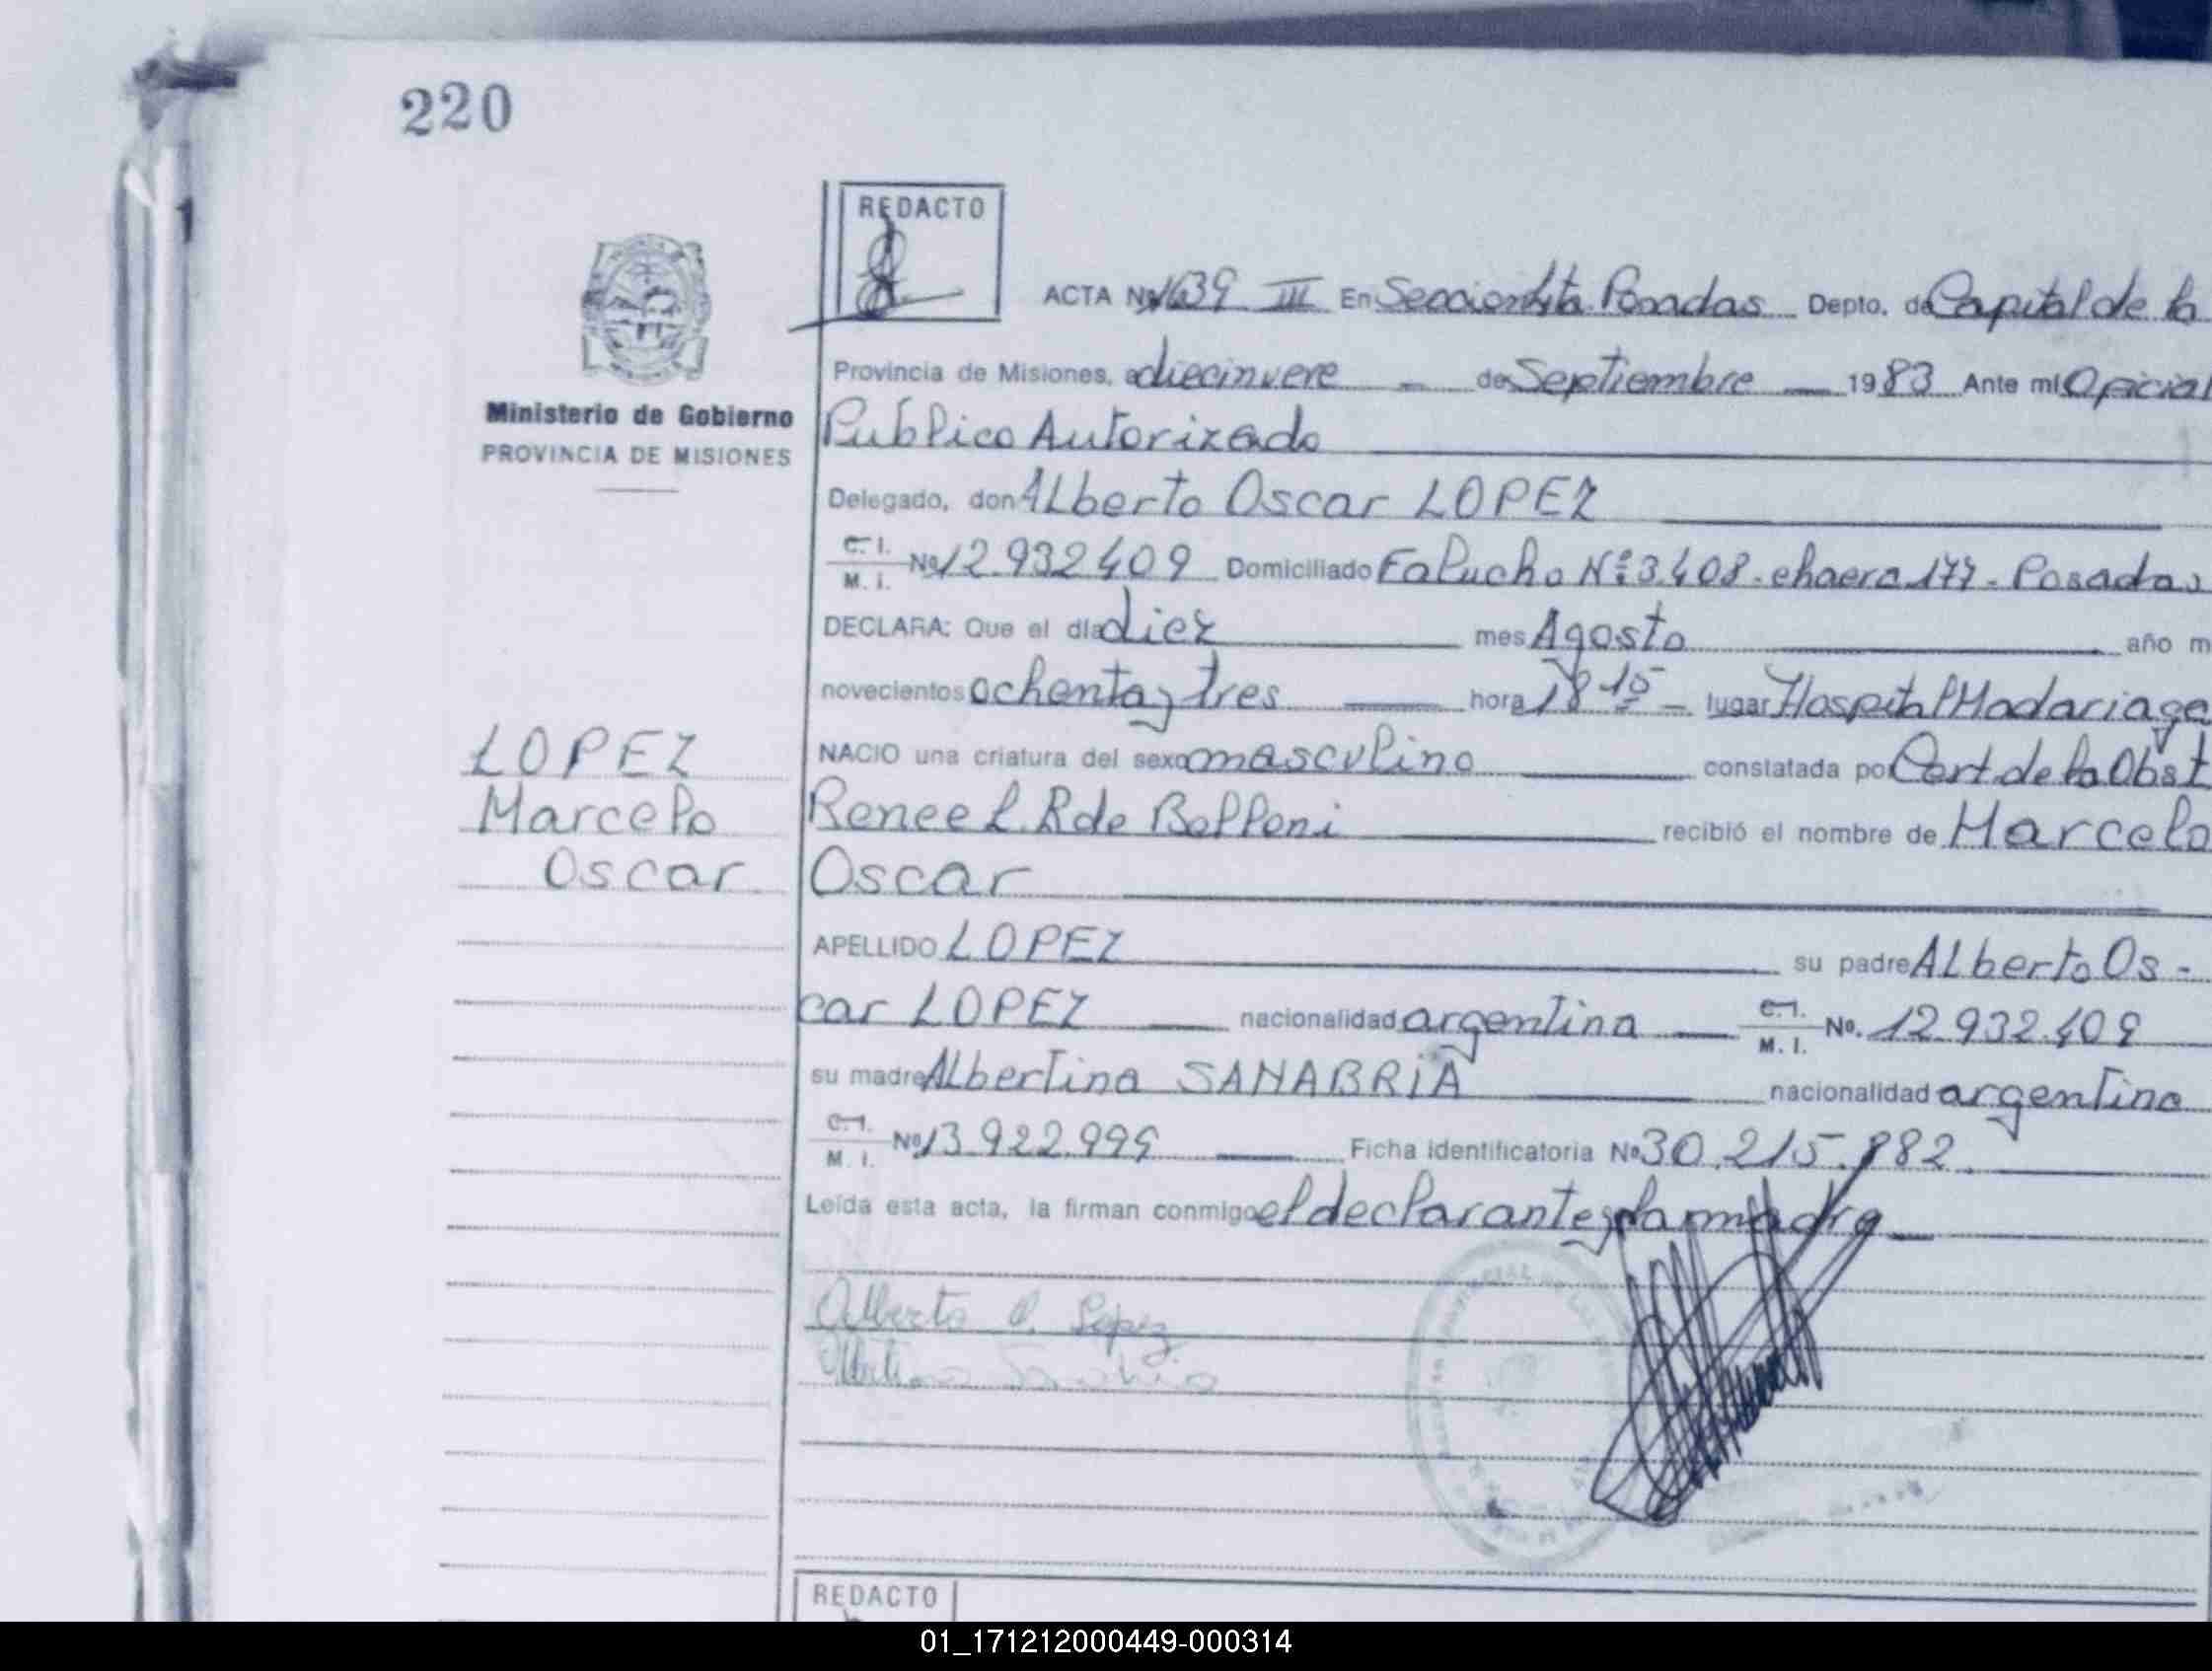 220
REDACTO
ACTA Nº 1639 III En Sección 4ta. Posadas Depto. de Capital de la
Provincia de Misiones, a diecinueve de Septiembre 1983 Ante mí Oficial
Ministerio de Gobierno
PROVINCIA DE MISIONES
Publico Autorizado
Delegado, don ALberto Oscar LOPEZ
C. I. M. I. Nº 12.932.409 Domiciliado Falucho Nº 3.408. chacra 177. Posadas
DECLARA: Que el día diez mes Agosto año m
novecientos ochenta y tres hora 18 15 lugar Hospital Madariaga
LOPEZ
Marcelo
Oscar
NACIO una criatura del sexo masculino constatada por Cert. de la Obst
Renee L. R de Belloni recibió el nombre de Marcelo
Oscar
APELLIDO LOPEZ su padre ALberto Os-
car LOPEZ nacionalidad argentina C. I. M. I. Nº. 12.932.409
su madre ALbertina SANABRIA nacionalidad argentina
C. I. M. I. Nº 13.922.999 Ficha identificatoria Nº 30.215.882.
Leída esta acta, la firman conmigo el declarante y la madre
Alberto O. Lopez
Albertina Sanabria
REDACTO
01_171212000449-000314